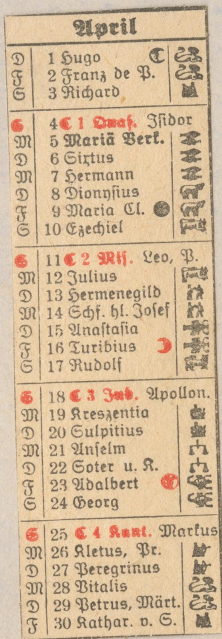 April
D 1 Hugo
F 2 Franz de P.
S 3 Richard
S 4 C 1 Quas. Isidor
M 5 Mariä Verk.
D 6 Sixtus
M 7 Hermann
D 8 Dionysius
F 9 Maria Cl.
S 10 Ezechiel
S 11 C 2 Mis. Leo, P.
M 12 Julius
D 13 Hermenegild
M 14 Schf. hl. Josef
D 15 Anastasia
F 16 Turibius
S 17 Rudolf
S 18 C 3 Jub. Apollon.
M 19 Kreszentia
D 20 Sulpitius
M 21 Anselm
D 22 Soter u. K.
F 23 Adalbert
S 24 Georg
S 25 C 4 Kant. Markus
M 26 Kletus, Pr.
D 27 Peregrinus
M 28 Vitalis
D 29 Petrus, Märt.
F 30 Kathar. v. S.